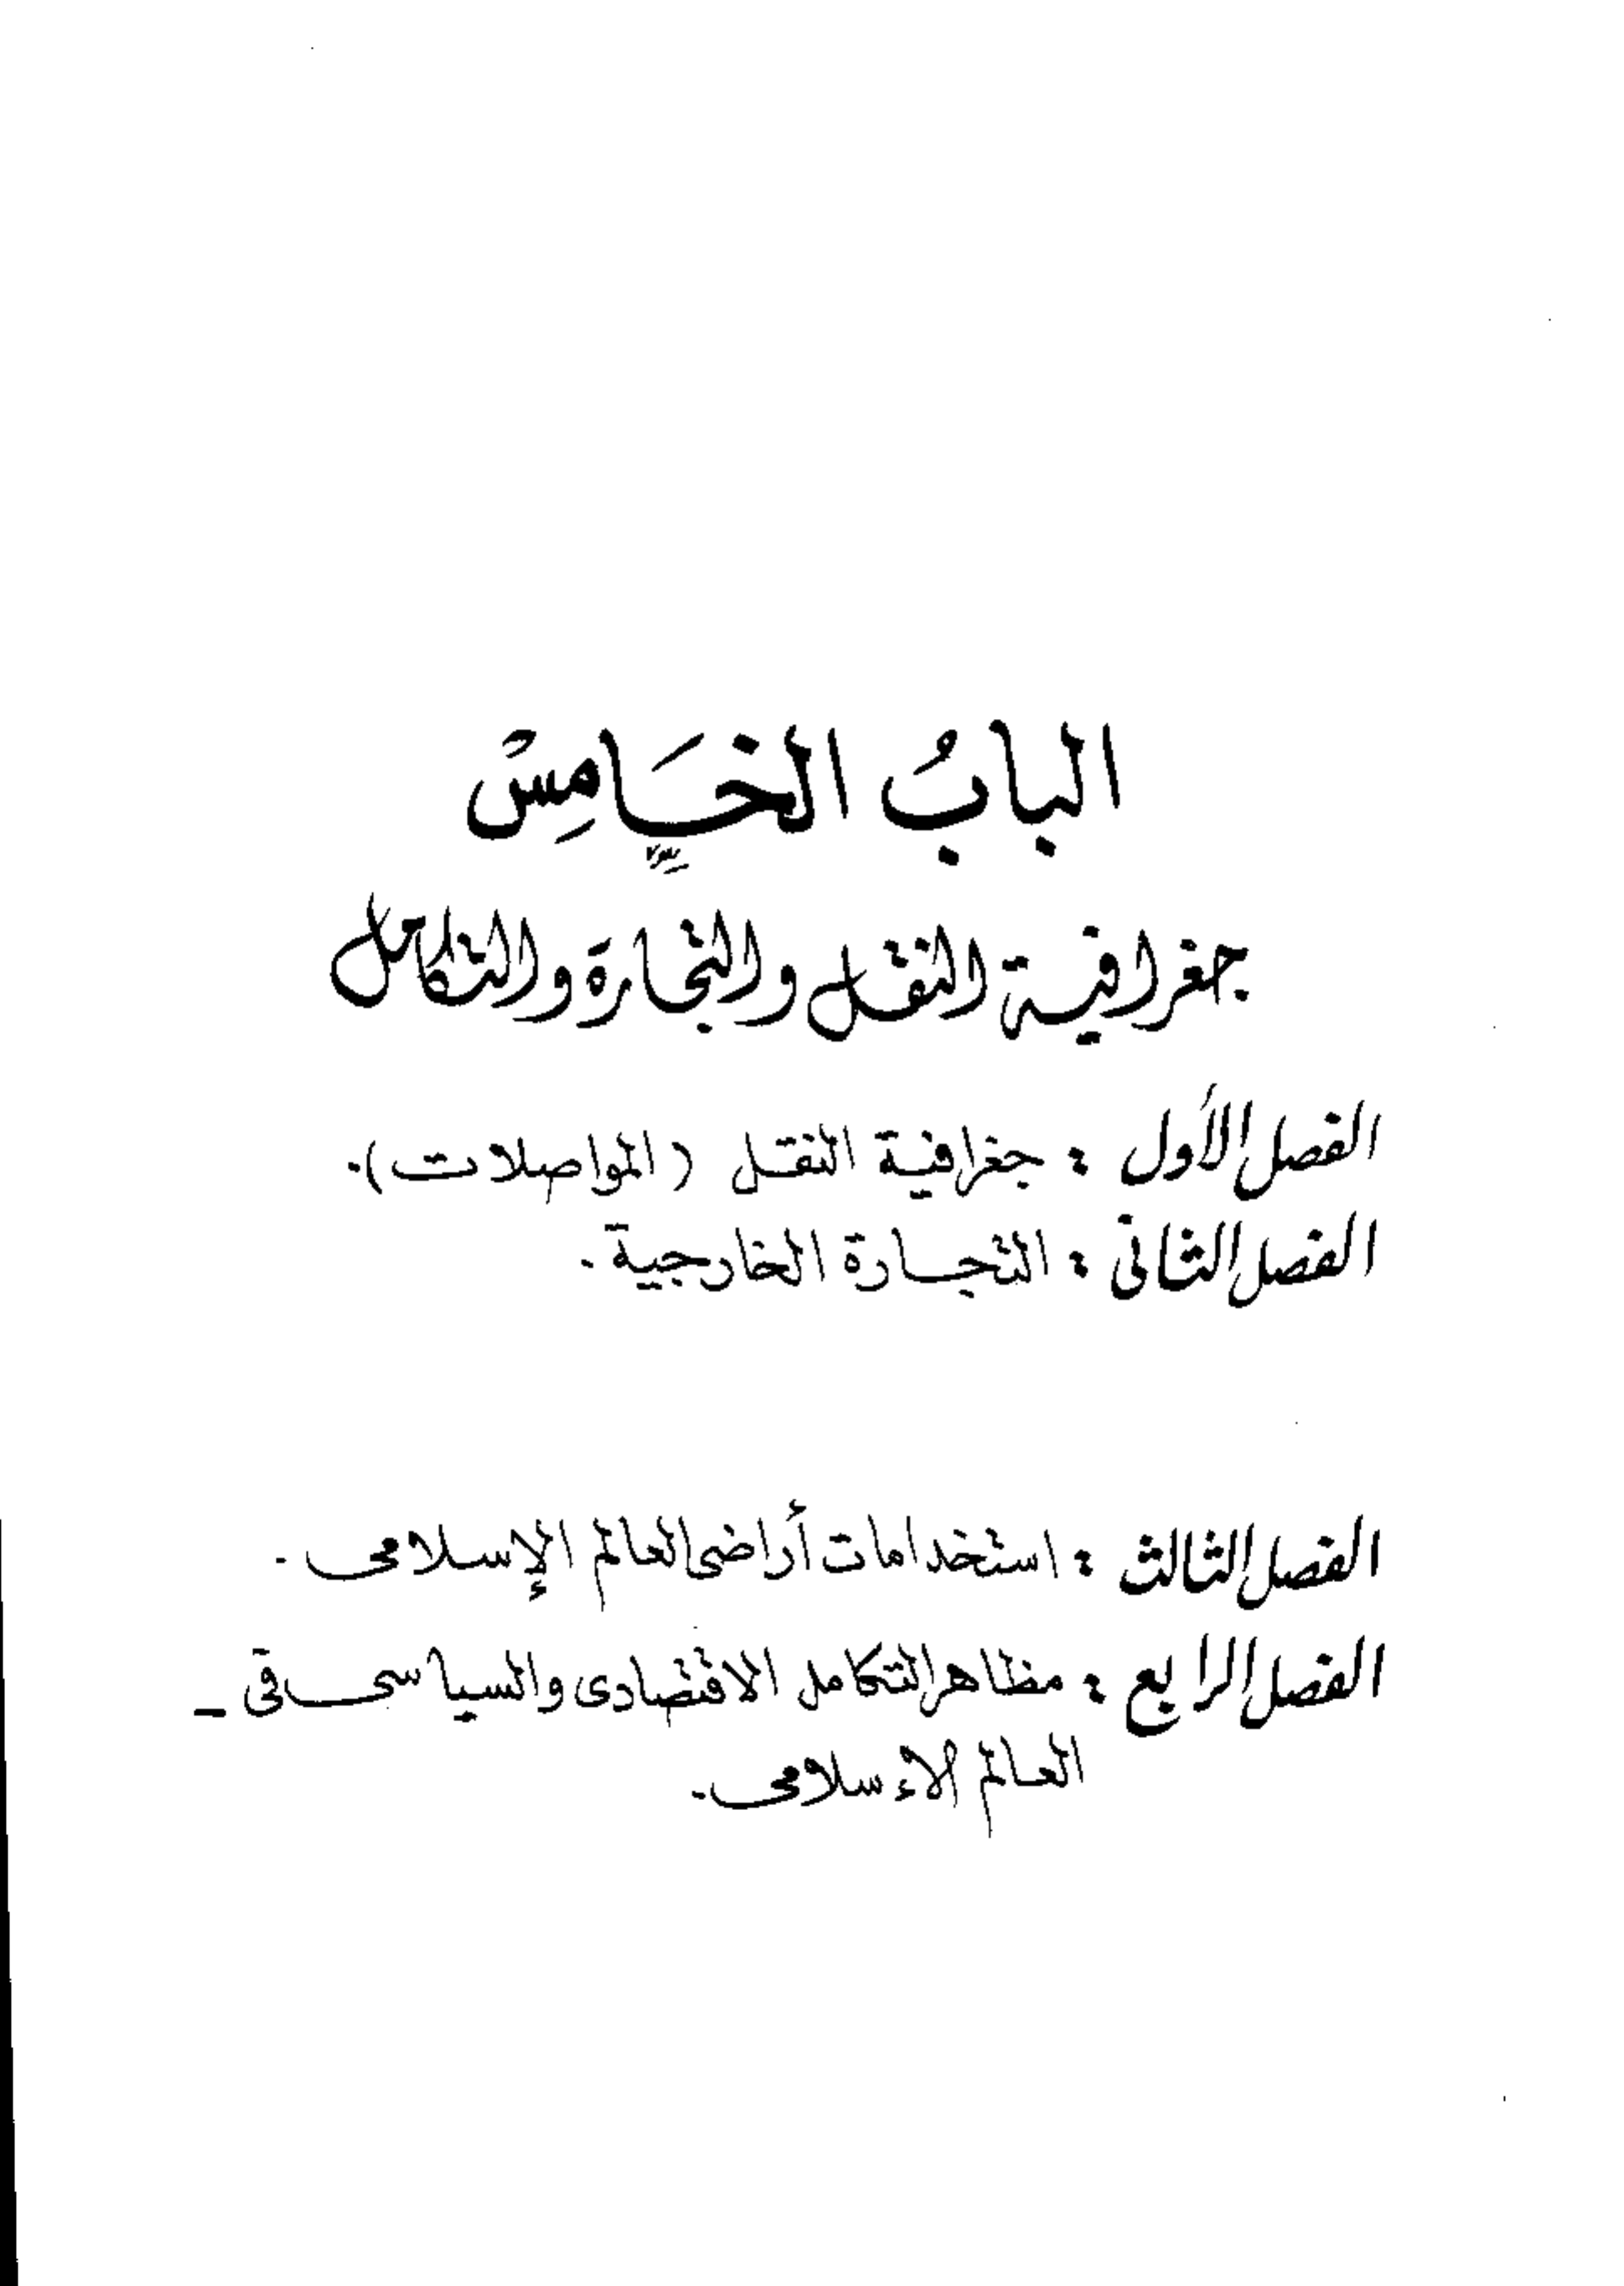 البابُ الخَامِسْ
جغرافية النقل والتجارة والتكامل
الفصل الأول : جغرافية النقل (المواصلات).
الفصل الثانى : التجارة الخارجية.
الفصل الثالث : استخدامات أراضى العالم الإسلامى.
الفصل الرابع : مظاهر التكامل الاقتصادى والسياسى فى -
العالم الإسلامى.